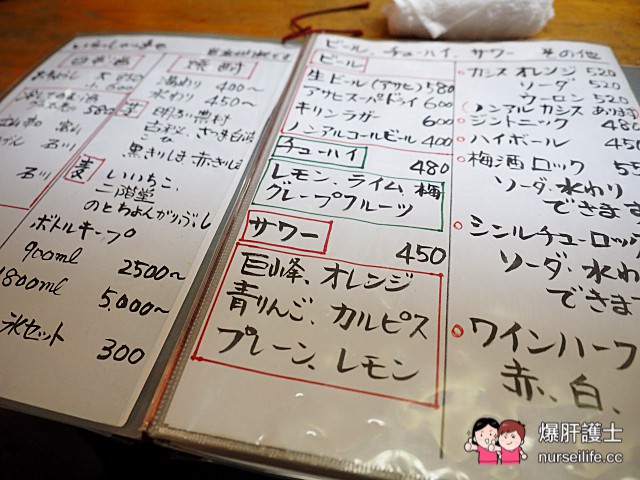 焼酎
湯わり 400〜
水わり 450〜
580
黒きりしま 赤きりしま
麦
いいちこ、
二階堂
ボトルキープ
900ml 2500〜
1800ml 5,000〜
氷セット 300
ビール、チューハイ、サワー その他
ビール
生ビール(アサヒ) 580
アサヒスーパードライ 600
キリンラガー 600
ノンアルコールビール 400
チューハイ 480
レモン、ライム、梅
グレープフルーツ
サワー 450
巨峰、オレンジ
青りんご、カルピス
プレーン、レモン
カシス オレンジ 520
ソーダ 520
ウーロン 520
(ノンアルカシスあります)
ジントニック 480
ハイボール 450
梅酒 ロック
ソーダ・水わり
できます
シンルチューロック
ソーダ・水わ
できま
ワインハーフ
赤、白、
爆肝護士
nurseilife.cc